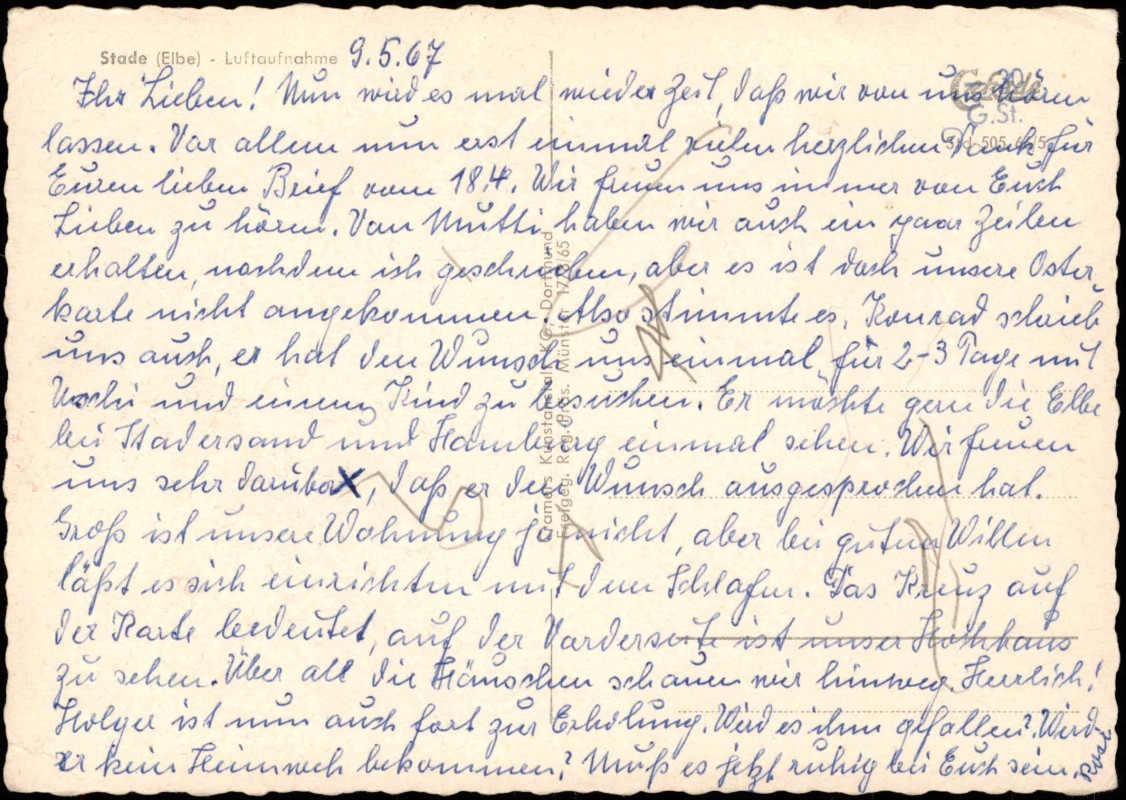 Stade (Elbe) - Luftaufnahme 9.5.67
Ihr Lieben! Nun wird es mal wieder Zeit, daß wir von uns hören
lassen. Vor allem nun erst einmal vielen herzlichen Dank für
Euren lieben Brief vom 18.4. Wir freuen uns immer von Euch
Lieben zu hören. Von Mutti haben wir auch ein paar Zeilen
erhalten, nachdem ich geschrieben, aber es ist doch unsere Oster
karte nicht angekommen. Also stimmte es, Konrad schrieb
uns auch, er hat den Wunsch uns einmal für 2-3 Tage mit
Uschi und einem Kind zu besuchen. Er möchte gern die Elbe
bei Stadersand und Hamburg einmal sehen. Wir freuen
uns sehr darüber X, daß er den Wunsch ausgesprochen hat.
Groß ist unsere Wohnung ja nicht, aber bei gutem Willen
läßt es sich einrichten mit dem Schlafen. Das Kreuz auf
der Karte bedeutet, auf der Vorderseite ist unser Hochhaus
zu sehen. Über all die Häuschen schauen wir hinweg. Herrlich!
Holger ist nun auch fort zur Erholung. Wird es ihm gefallen? Wird
er kein Heimweh bekommen? Muß es jetzt ruhig bei Euch sein.
Rosi
G.St.
Cramers Kunstanstalt KG., Dortmund
Freigeg. Reg.-Präs. Münster 1773/65